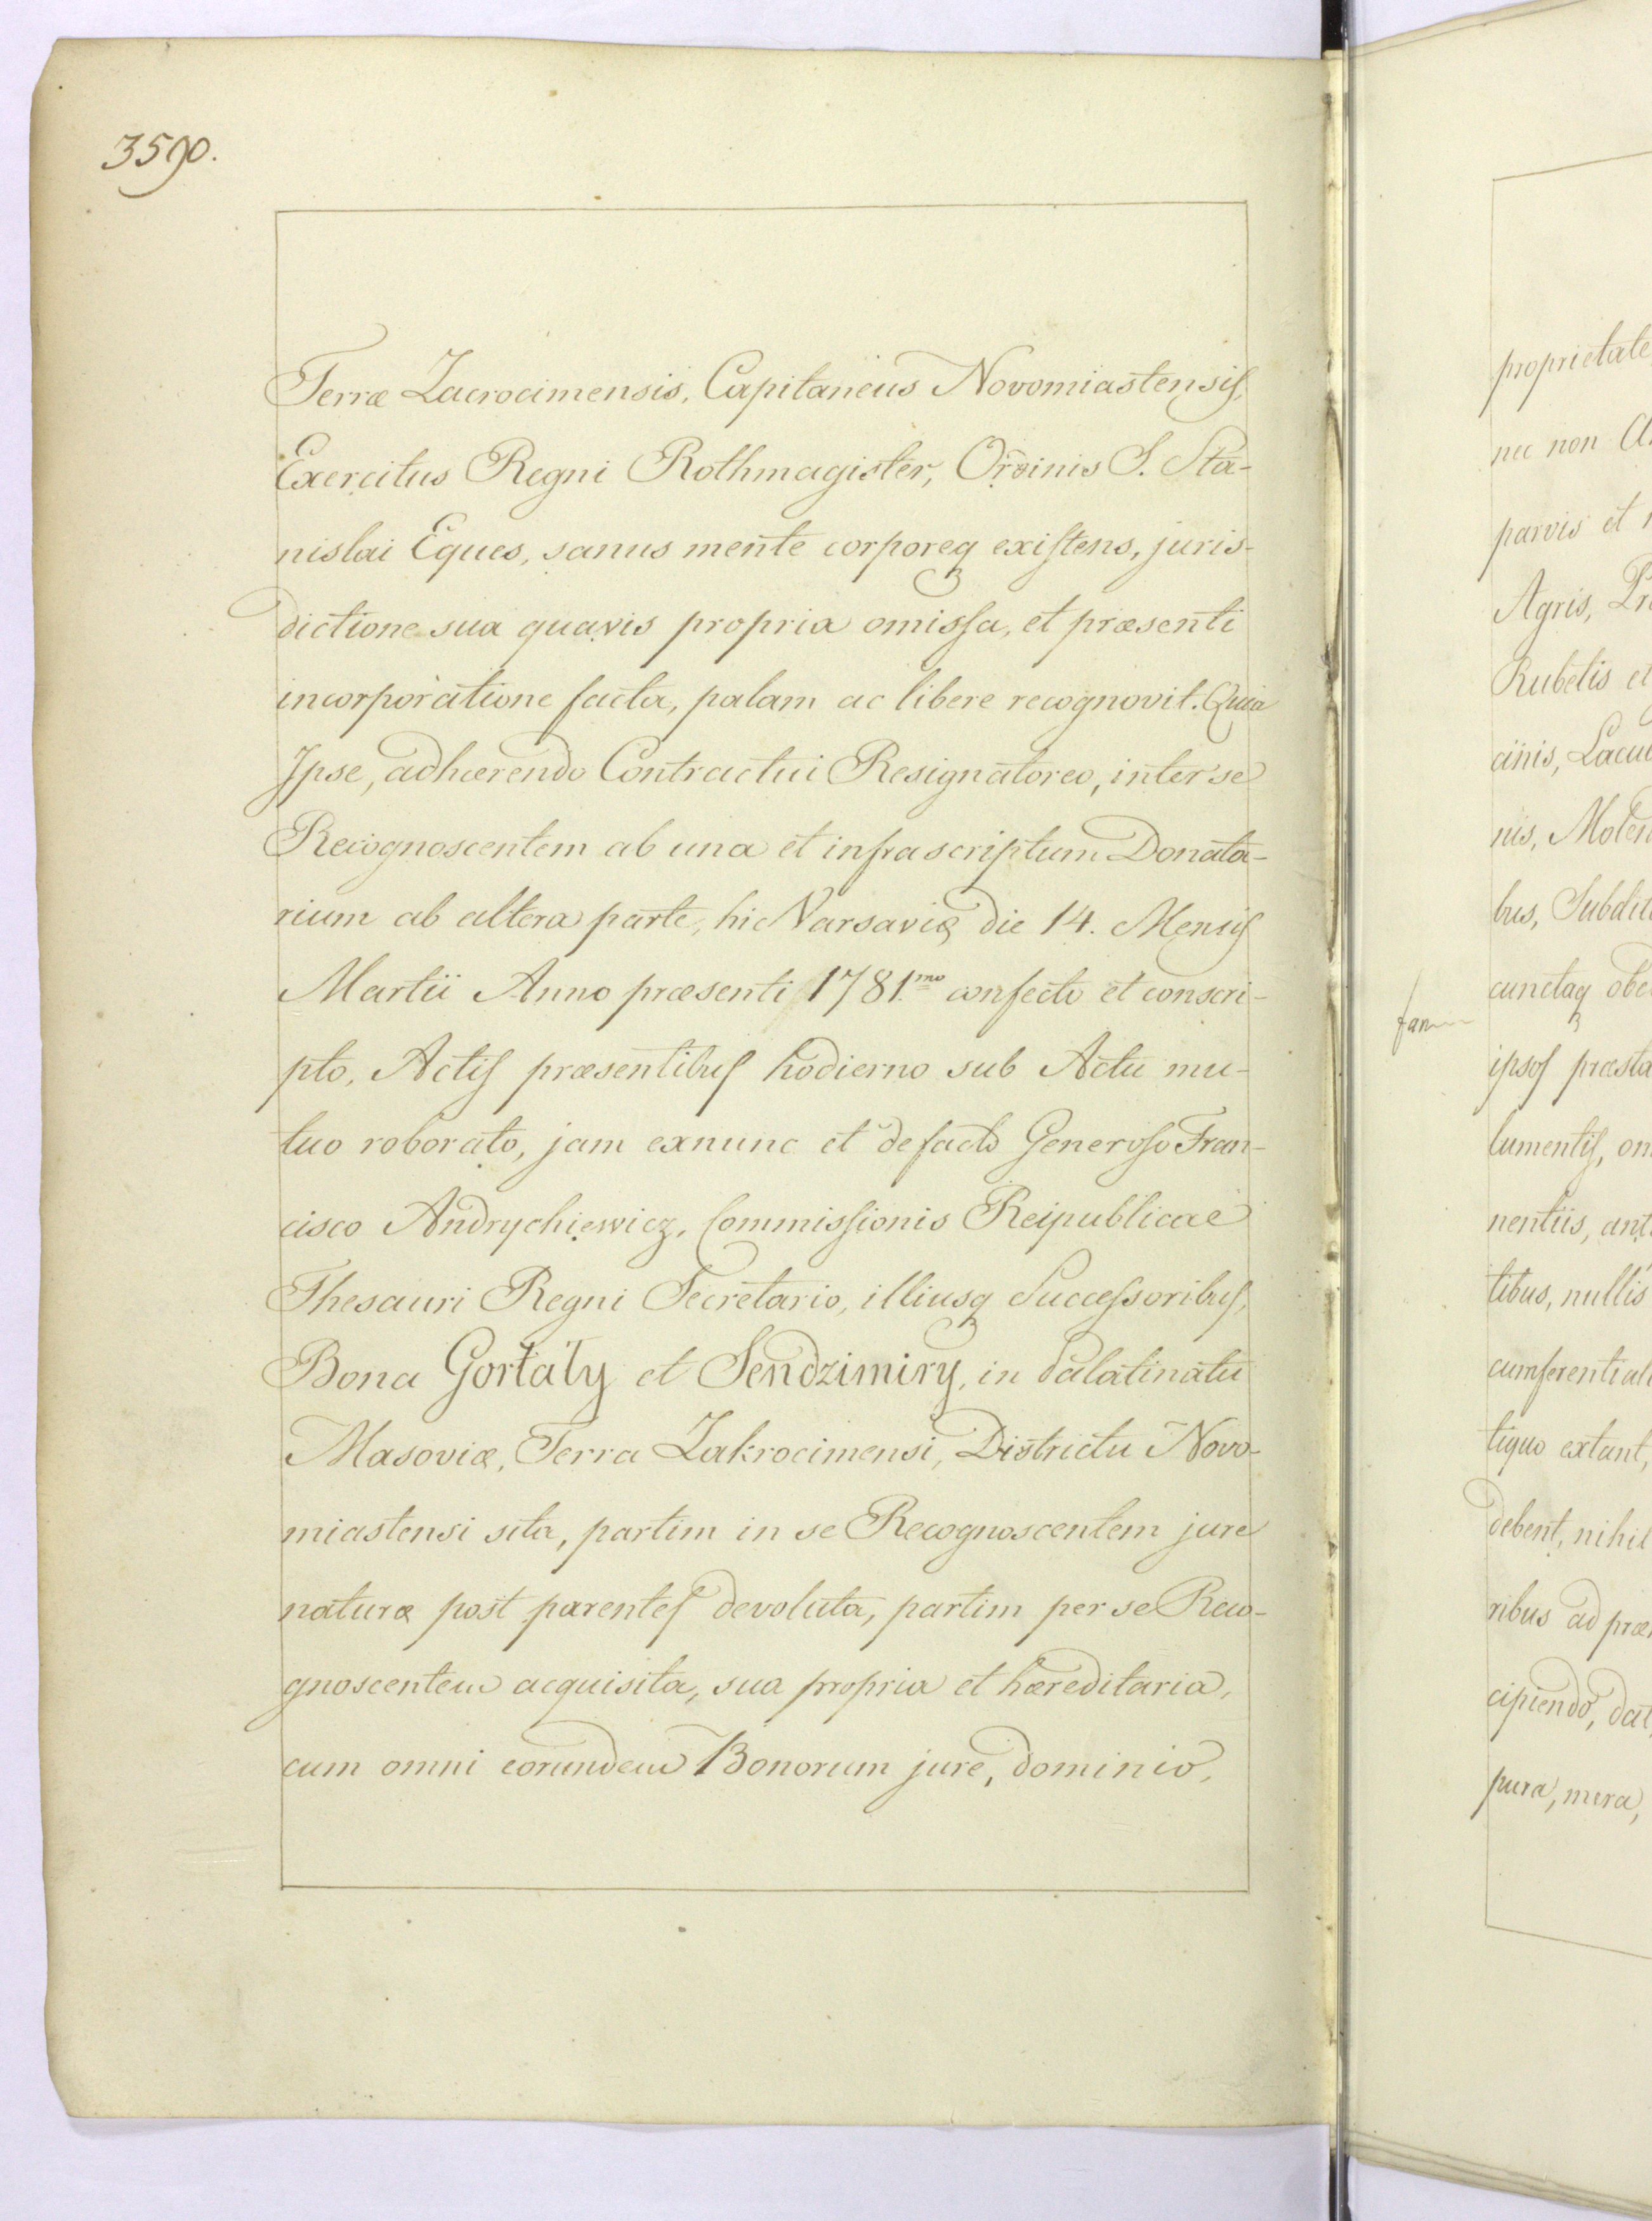 3590.
Terræ Zacrocimensis, Capitaneus Novomiastensis,
Exercitus Regni Rothmagister, Ordinis S. Sta-
nislai Eques, sanus mente corporeq existens, juris-
dictione sua quavis propria omissa, et præsenti
incorporatione facta, palam ac libere recognovit. Quia
Ipse, adhærendo Contractui Resignatoreo, inter se
Recognoscentem ab una et infrascriptum Donata-
rium ab altera parte, hic Varsaviæ die 14. Mensis
Martii Anno præsenti 1781.mo confecto et conscri-
pto, Actis præsentibus hodierno sub Actu mu-
tuo roborato, jam exnunc et defacto Generoso Fran-
cisco Andrychiewicz, Commissionis Reipublicae
Thesauri Regni Secretario, illiusq Successoribus,
Bona Gortaty et Sendzimiry, in Palatinatu
Masoviæ, Terra Zakrocimensi, Districtu Novo-
miastensi sita, partim in se Recognoscentem jure
naturæ post parentes devoluta, partim per se Reco-
gnoscentem acquisita, sua propria et hæreditaria,
cum omni eorundem Bonorum jure, dominio,
proprietate
nec non
parvis et
Agris,
Rubetis et
cinis,
nis,
bus,
cunctaq
ipsos
lumentis,
nentiis,
tibus, nullis
tiquo extant,
debent, nihil
ribus ad
cipiendo,
pura, mera,